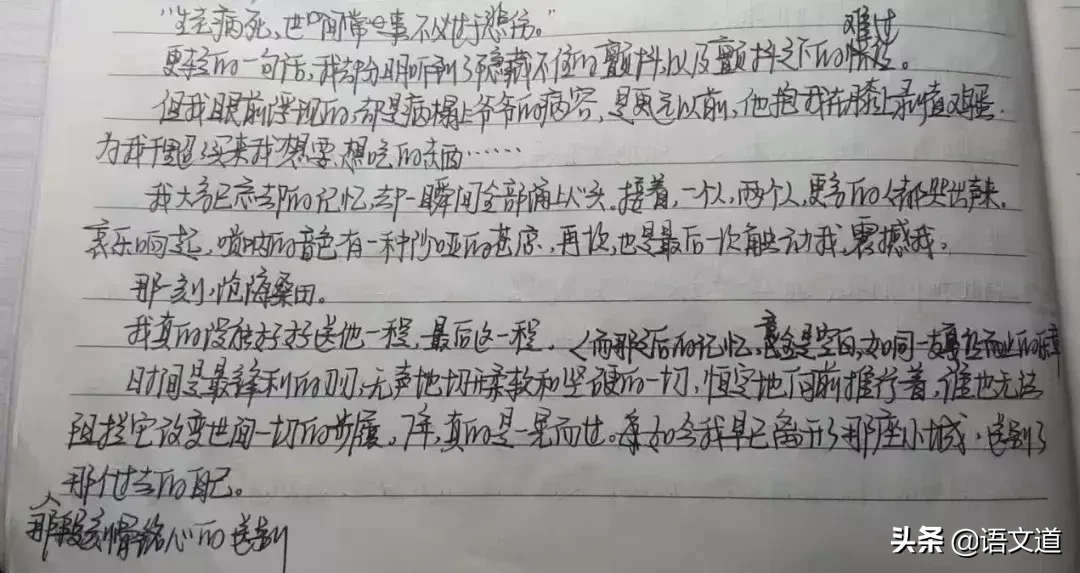 “生老病死,世间常事,不必过于悲伤。”
难过
更轻的一句话,我却分明听到了隐藏不住的颤抖,以及颤抖之下的。
但我眼前浮现的,都是病榻上爷爷的病容,是更远以前,他抱我在膝上剥鸡蛋,
为我买来我想要、想吃的东西……
我大多已忘却的记忆,却一瞬间全部涌上心头。接着,一个人,两个人,更多的人都哭出声来,
哀乐响起,唢呐的音色有一种沙哑的苍凉,再次,也是最后一次触动我,震撼我。
那一刻,沧海桑田。
我真的没能好好送他一程,最后这一程,而那之后的记忆,竟全是空白,如同一支戛然而止的
时间是最锋利的刃,无声地切开柔软和坚硬的一切,恒定地向前推行着,谁也无法
阻拦它改变世间一切的步履,7年,真的是一晃而过。如今我早已离开了那座小城,送别了
那个过去的自己。
那段刻骨铭心的送别
头条 @语文道